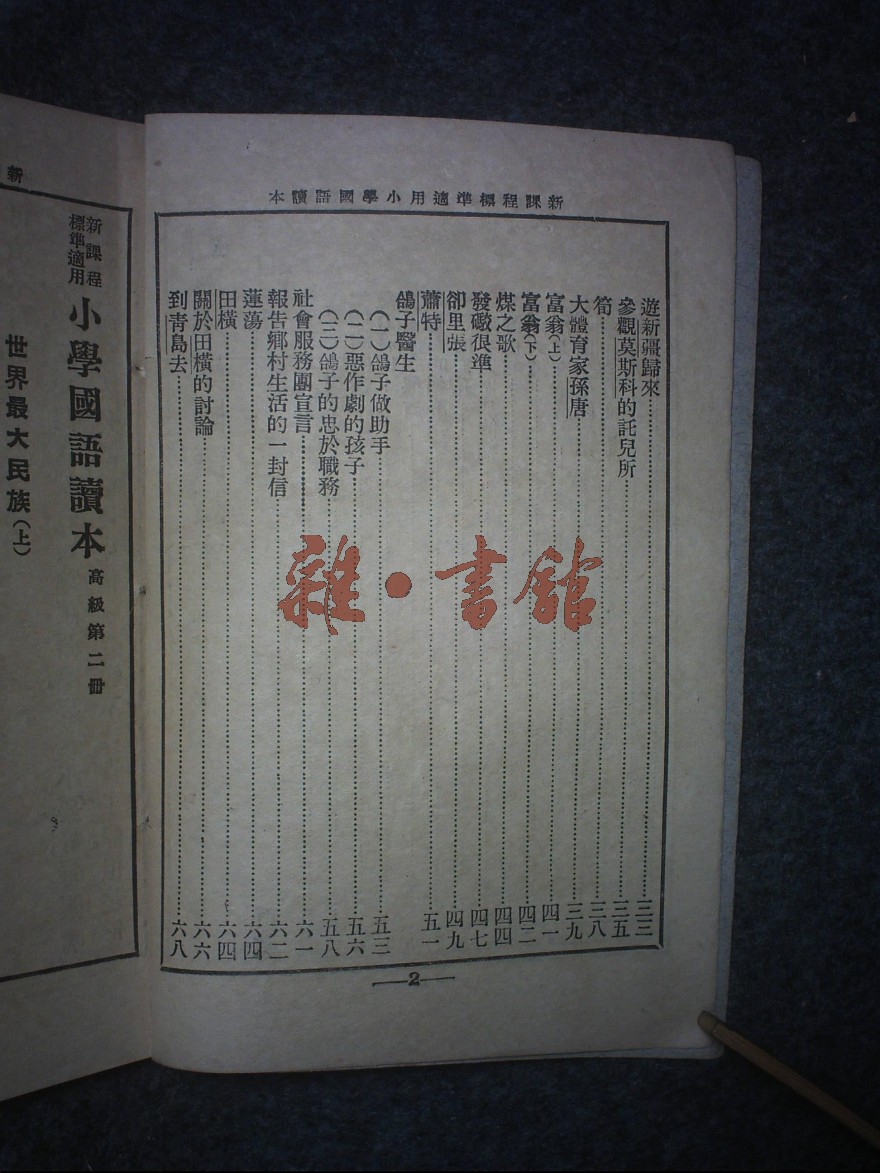 新課程標準適用小學國語讀本
遊新疆歸來……三三
參觀莫斯科的託兒所……三五
筍……三八
大體育家孫唐……三九
富翁(上)……四一
富翁(下)……四二
煤之歌……四四
發礮很準……四七
卻里張……四九
蕭特……五一
鴿子醫生
(一)鴿子做助手……五三
(二)惡作劇的孩子……五六
(三)鴿子的忠於職務……五八
社會服務團宣言……六一
報告鄉村生活的一封信……六二
蓮蕩……六四
田橫……六四
關於田橫的討論……六六
到青島去……六八
2
雜·書館
新
新課程
標準適用
小學國語讀本
高級第二冊
世界最大民族(上)